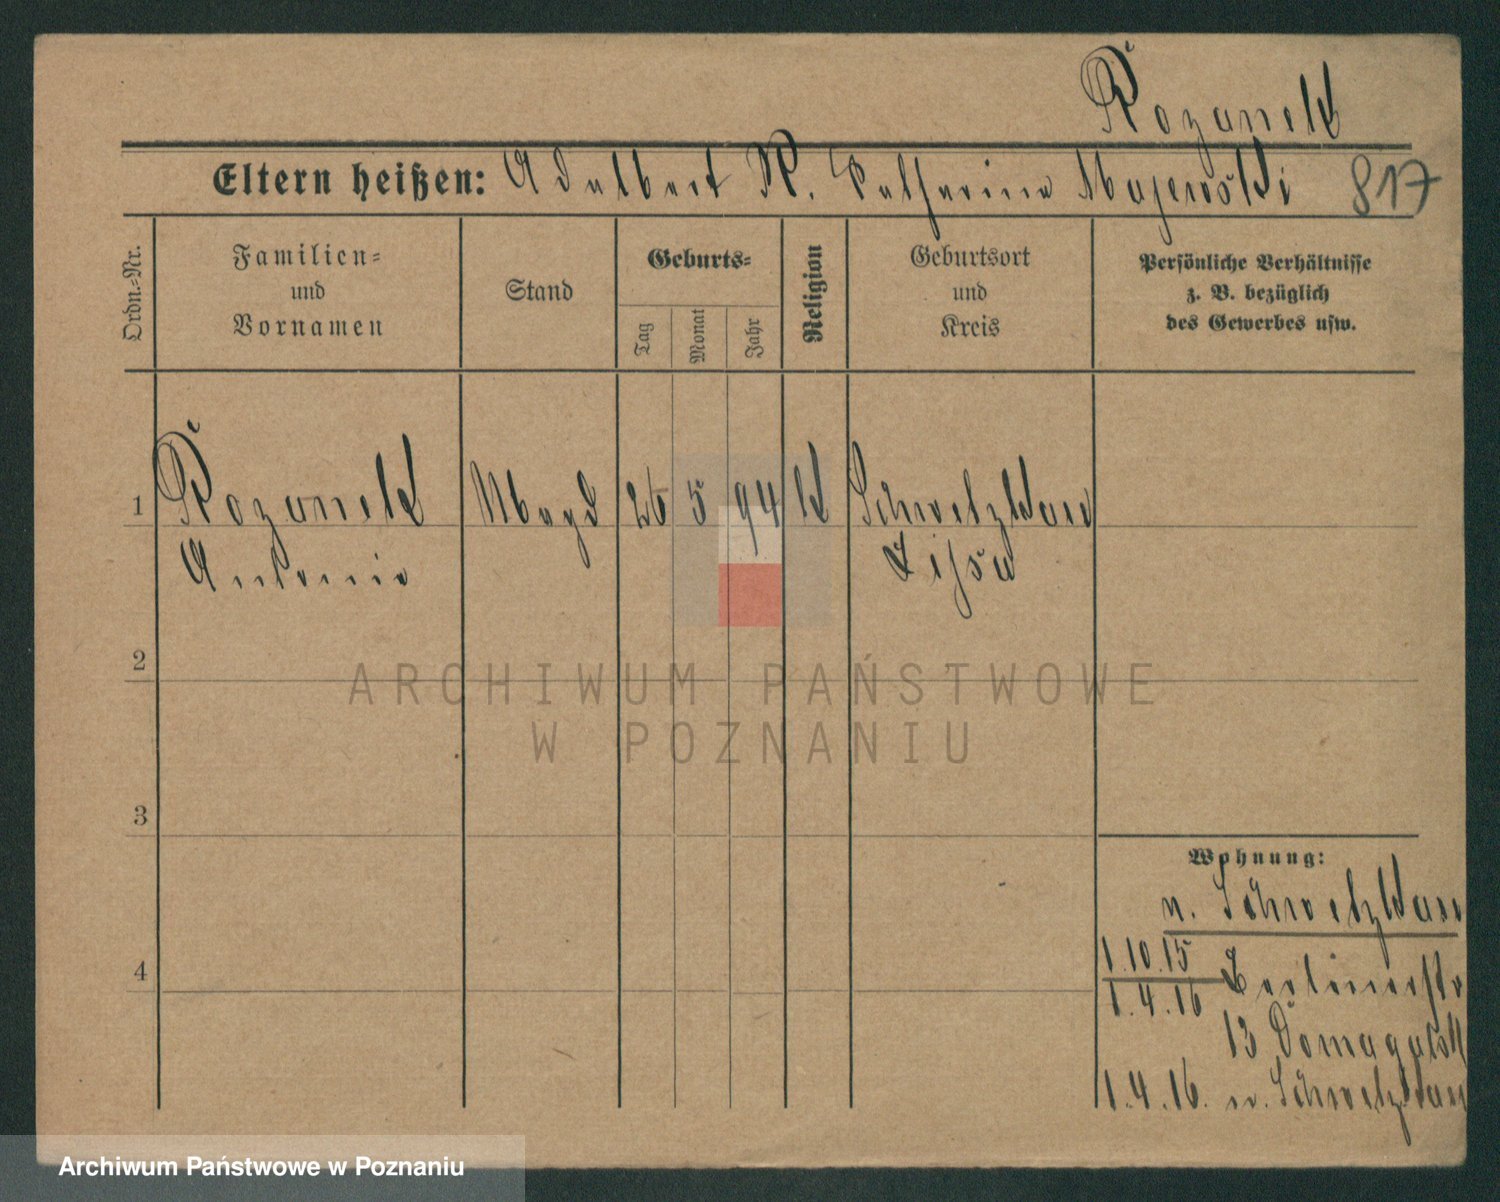 Rozanek
Eltern heißen: Adalbert R. Katharina Majewski 817
Ordn.-Nr.
Familien-
und
Vornamen
Stand
Geburts-
Tag
Monat
Jahr
Religion
Geburtsort
und
Kreis
Persönliche Verhältnisse
z. B. bezüglich
des Gewerbes usw.
1 Rozanek Magd 26 5 94 K Schwetzkau
Antonie Lissa
2
ARCHIWUM PAŃSTWOWE
W POZNANIU
3
Wohnung:
n. Schwetzkau
4
1.10.15 Berlinerstr
1.4.16
13 Domagalsk
1.4.16. n. Schwetzkau
Archiwum Państwowe w Poznaniu